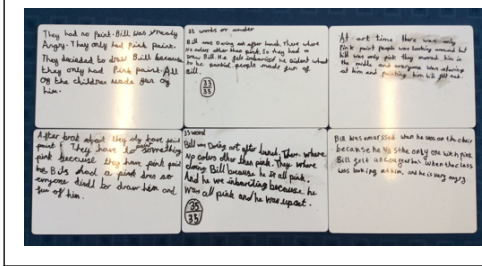 They had no paint. Bill was already
Angry. They only had Pink paint.
They decided to draw Bill because
they only had Pink paint. All
of the children made fun of
him.
35 words or under
Bill was Doing art after lunch. There where
no colors other than pink. So they had to
draw Bill. He felt
to be painted. people made fun of
Bill.
33
35
At art time there was only
Pink paint people was looking around but
bill was only pink they moved him in
the middle and everyone was
at him and painting him bill felt
After brake they only have
paint. They have to something
pink beccuse they have pink paint
so Bills had a pink
everyone to draw him and
fun of him.
35 word
Bill was Doing art after lunch. There where
no colors other then pink. They where
doing Bill because he is all pink.
And he was because he
was all pink and he was upset.
35
35
Bill was when he was on the chair
because he is the only one with pink.
Bill gets when the class
was looking at him, and he is very angry